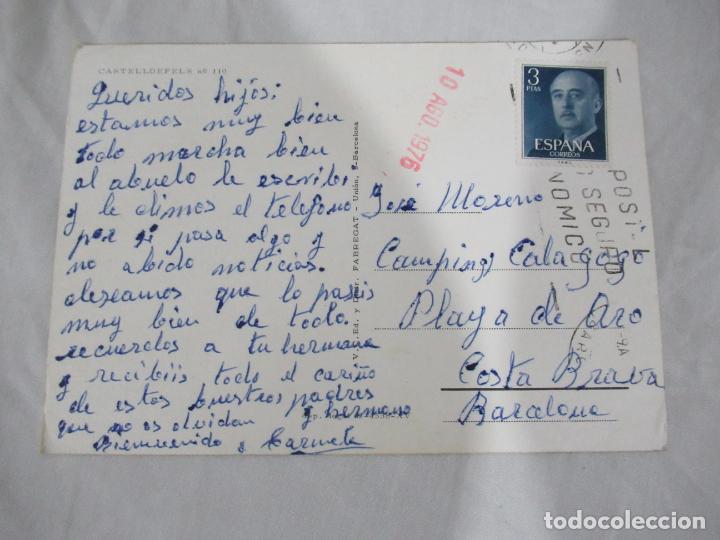 CASTELLDEFELS nº 110
Queridos hijos:
estamos muy bien
todo marcha bien
al abuelo le escribi.
y le dimos el telefono
por si pasa algo y
no abido noticias.
deseamos que lo paseis
muy bien de todo.
recuerdos a tu hermana
y recibiis todo el cariño
de estos buestros padres
y hermano
que no os olvidan
Bienvenido y Carmeta
FABREGAT - Unión, - Barcelona
10 AGO. 1976
3
PTAS
ESPAÑA
CORREOS
POSTAL
O SEGURO
NOMICO
José Moreno
Camping Cala gogo
Playa de Aro
Costa Brava
Barcelona
todocoleccion
todocoleccion.net